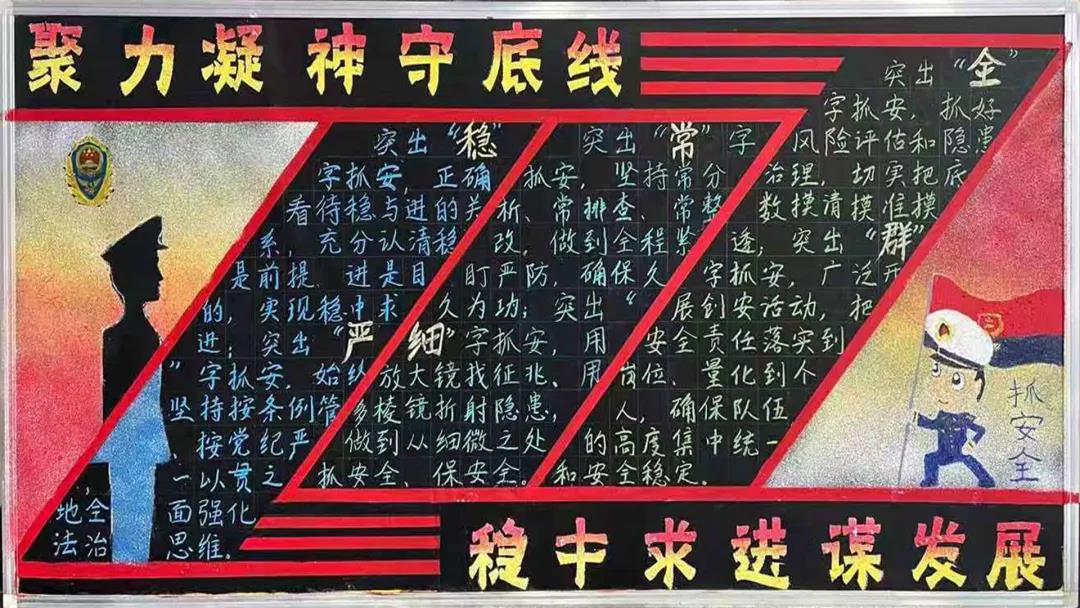 聚力凝神守底线
突出“稳”
字抓安，正确
看待稳与进的关
系，充分认清稳
是前提、进是目
的，实现稳中求
进；突出“严
”字抓安，始终
坚持按条例管
、按党纪严
，一以贯之
地全面强化
法治思维。
突出“常”字
抓安，坚持常分
析、常排查、常整
改，做到全程紧
盯严防，确保久
久为功；突出“
细”字抓安，用
放大镜找征兆、用
多棱镜折射隐患，
做到从细微之处
抓安全、保安全。
突出“全”
字抓安，抓好
风险评估和隐患
治理，切实把底
数摸清摸准摸
透；突出“群”
字抓安，广泛开
展创安活动，把
安全责任落实到
岗位、量化到个
人，确保队伍
的高度集中统一
和安全稳定。
抓安全
稳中求进谋发展